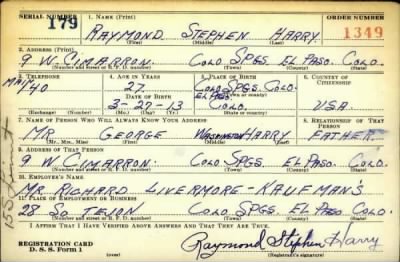 SERIAL NUMBER 1. NAME (Print) ORDER NUMBER
179 RAYMOND STEPHEN HARRY 1349
(First) (Middle) (Last)
2. ADDRESS (Print)
9 W. CIMARRON. COLO SPGS. EL PASO. COLO.
(Number and street or R. F. D. number) (Town) (County) (State)
3. TELEPHONE 4. AGE IN YEARS 5. PLACE OF BIRTH 6. COUNTRY OF CITIZENSHIP
MAI/40 27. COLO SPGS.
DATE OF BIRTH EL PASO
3-27-13 COLO. USA.
(Exchange) (Number) (Mo.) (Day) (Yr.) (State or country)
7. NAME OF PERSON WHO WILL ALWAYS KNOW YOUR ADDRESS 8. RELATIONSHIP OF THAT PERSON
MR GEORGE WASHINGTON HARRY FATHER
(Mr., Mrs., Miss) (First) (Middle) (Last)
9. ADDRESS OF THAT PERSON
9 W. CIMARRON. COLO SPGS. EL PASO. COLO.
(Number and street or R. F. D. number) (Town) (County) (State)
10. EMPLOYER'S NAME
MR. RICHARD LIVERMORE - KAUFMAN'S
11. PLACE OF EMPLOYMENT OR BUSINESS
28 SO TEJON COLO SPGS. EL PASO COLO.
(Number and street or R. F. D. number) (Town) (County) (State)
I AFFIRM THAT I HAVE VERIFIED ABOVE ANSWERS AND THAT THEY ARE TRUE.
REGISTRATION CARD
D. S. S. Form 1 (over) Raymond Stephen Harry
(Registrant's signature)